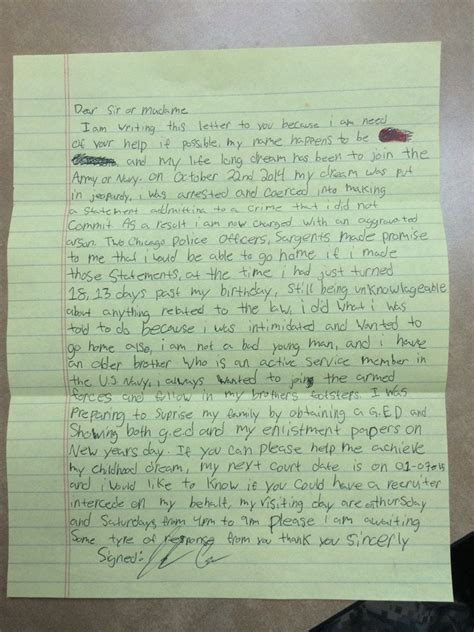 Dear Sir or Madame
I am writing this letter to you because i am need
of your help if possible, my name happens to be
and my life long dream has been to join the
Army or Navy. on October 22nd 2014 my dream was put
in jeopardy, i was arrested and Coerced into making
a Statement admitting to a crime that i did not
Commit As a result i am now charged with an aggravated
arson. Two Chicago Police Officers, Sargents made promise
to me that i would be able to go home if i made
those Statements, at the time i had just turned
18, 13 days past my birthday, Still being unknowlageable
about anything related to the law, i did what i was
told to do because i was intimidated and wanted to
go home also, i am not a bad young man, and i have
an older brother who is an active service member in
the U.S Navy, i always wanted to join the armed
forces and follow in my brothers footsters. I was
Preparing to Suprise my family by obtaining a G.E.D and
Showing both g.ed and my enlistment papers on
New years day. If you can please help me achieve
my childhood dream, my next court date is on
and i would like to know if you could have a recruiter
intercede on my behalf, my visiting day are on thursday
and Saturdays from 4pm to 9m please i am awaiting
Some tyre of response from you thank you sincerly
Signed: